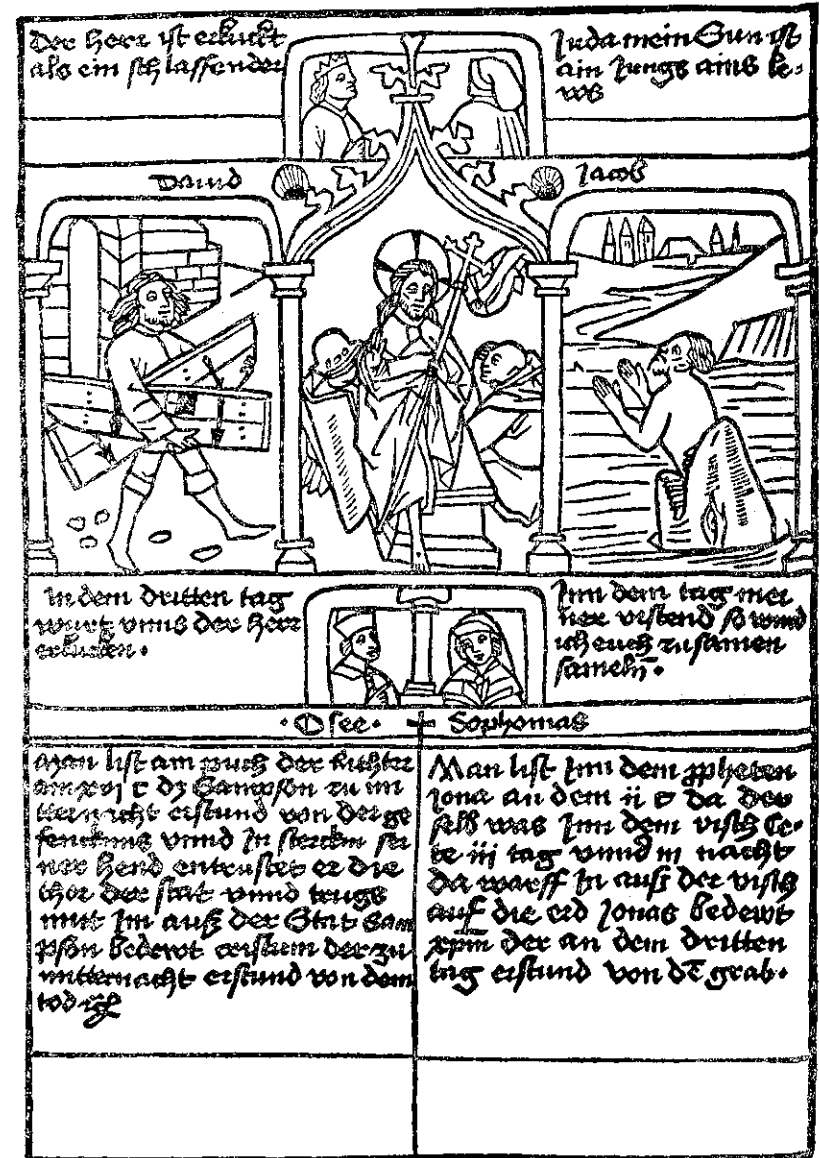 Der Herr ist erkuckt
als ein schlaffender
Juda mein Sun ist
ain Jungs ains le-
ws
Dauid
Jacob
In dem dritten tag
wurt vnns der Herr
erkucken.
Inn dem tag mei
ner vrstend so wird
ich euch zusamen
sameln̄.
Osee. Sophonias
Man list am puch der Richter
am xvj c dz Sampson zu mi
tternacht erstund von der ge
fencknus vnnd In sterckin sei
ner hend entrustet er die
thor der stat vnnd trugs
mitt Im auß der Stat Sam
pson bedewt cristum der zu
mitternacht erstund von dem
tod
Man list Inn dem ppheten
Jona an dem ii c da der
selb was Inn dem visch Ce-
te iij tag vnnd iii nacht
da warff In auß der visch
auf die erd Jonas bedewt
xpm̄ der an dem dritten
tag erstund von dē grab.